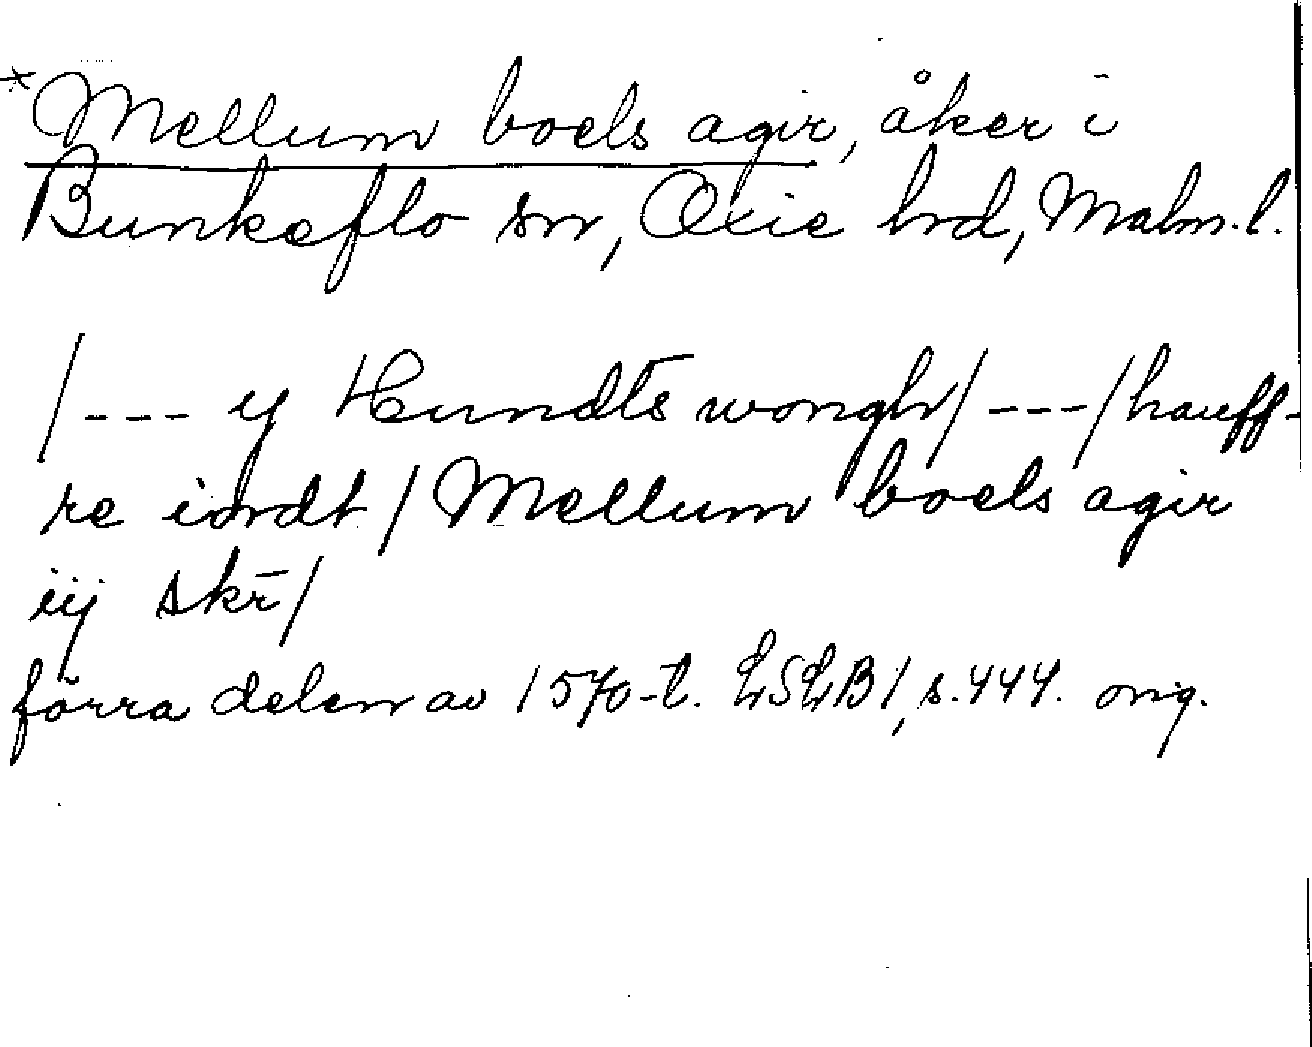 *Mellum boels agir, åker i
Bunkeflo sn, Oxie hrd, Malm. l.
/--- y Hundts wongh/ ---/ hauff-
re iordt / Mellum boels agir
iij skr̄/
förra delen av 1570-t. LSLB1, s. 444. orig.